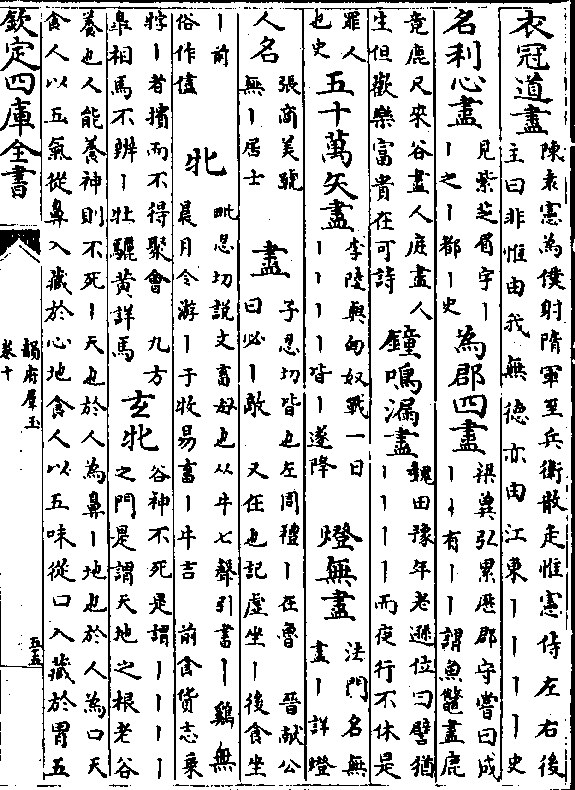 衣冠道盡 陳袁憲為僕射隋軍至兵衛散走惟憲侍左右後
主曰非惟由我無德亦由江東丨丨丨丨史
名利心盡 見紫芝眉宇丨
丨之丨都丨史
為郡四盡 梁冀弘累歷郡守嘗曰成
丨丨有丨丨謂魚鼈盡鹿
竟鹿尺來谷盡人庭盡人
生但歡樂富貴在可詩
鐘鳴漏盡 魏田豫年老遜位曰譬猶
丨丨丨丨而夜行不休是
罪人
也史
五十萬矢盡 李陵與匈奴戰一日
丨丨丨丨皆丨遂降
燈無盡 法門名無
盡丨詳燈
人名 張商英號
無丨居士
盡 子忍切皆也左周禮丨在魯 晉獻公
曰必丨敵 又任也記虛坐丨後食坐
丨前
俗作儘
牝 毗忍切說文畜母也从牛七聲引書丨鷄無
晨月令游丨于牧易畜丨牛吉 前食貨志乗
牸丨者擯而不得聚會 九方
臯相馬不辨丨牡驪黃詳馬
玄牝 谷神不死是謂丨丨丨丨
之門是謂天地之根老谷
養也人能養神則不死丨天也於人為鼻丨地也於人為口天
食人以五氣從鼻入藏於心地食人以五味從口入藏於胃五
欽定四庫全書
韻府羣玉
卷十
五五